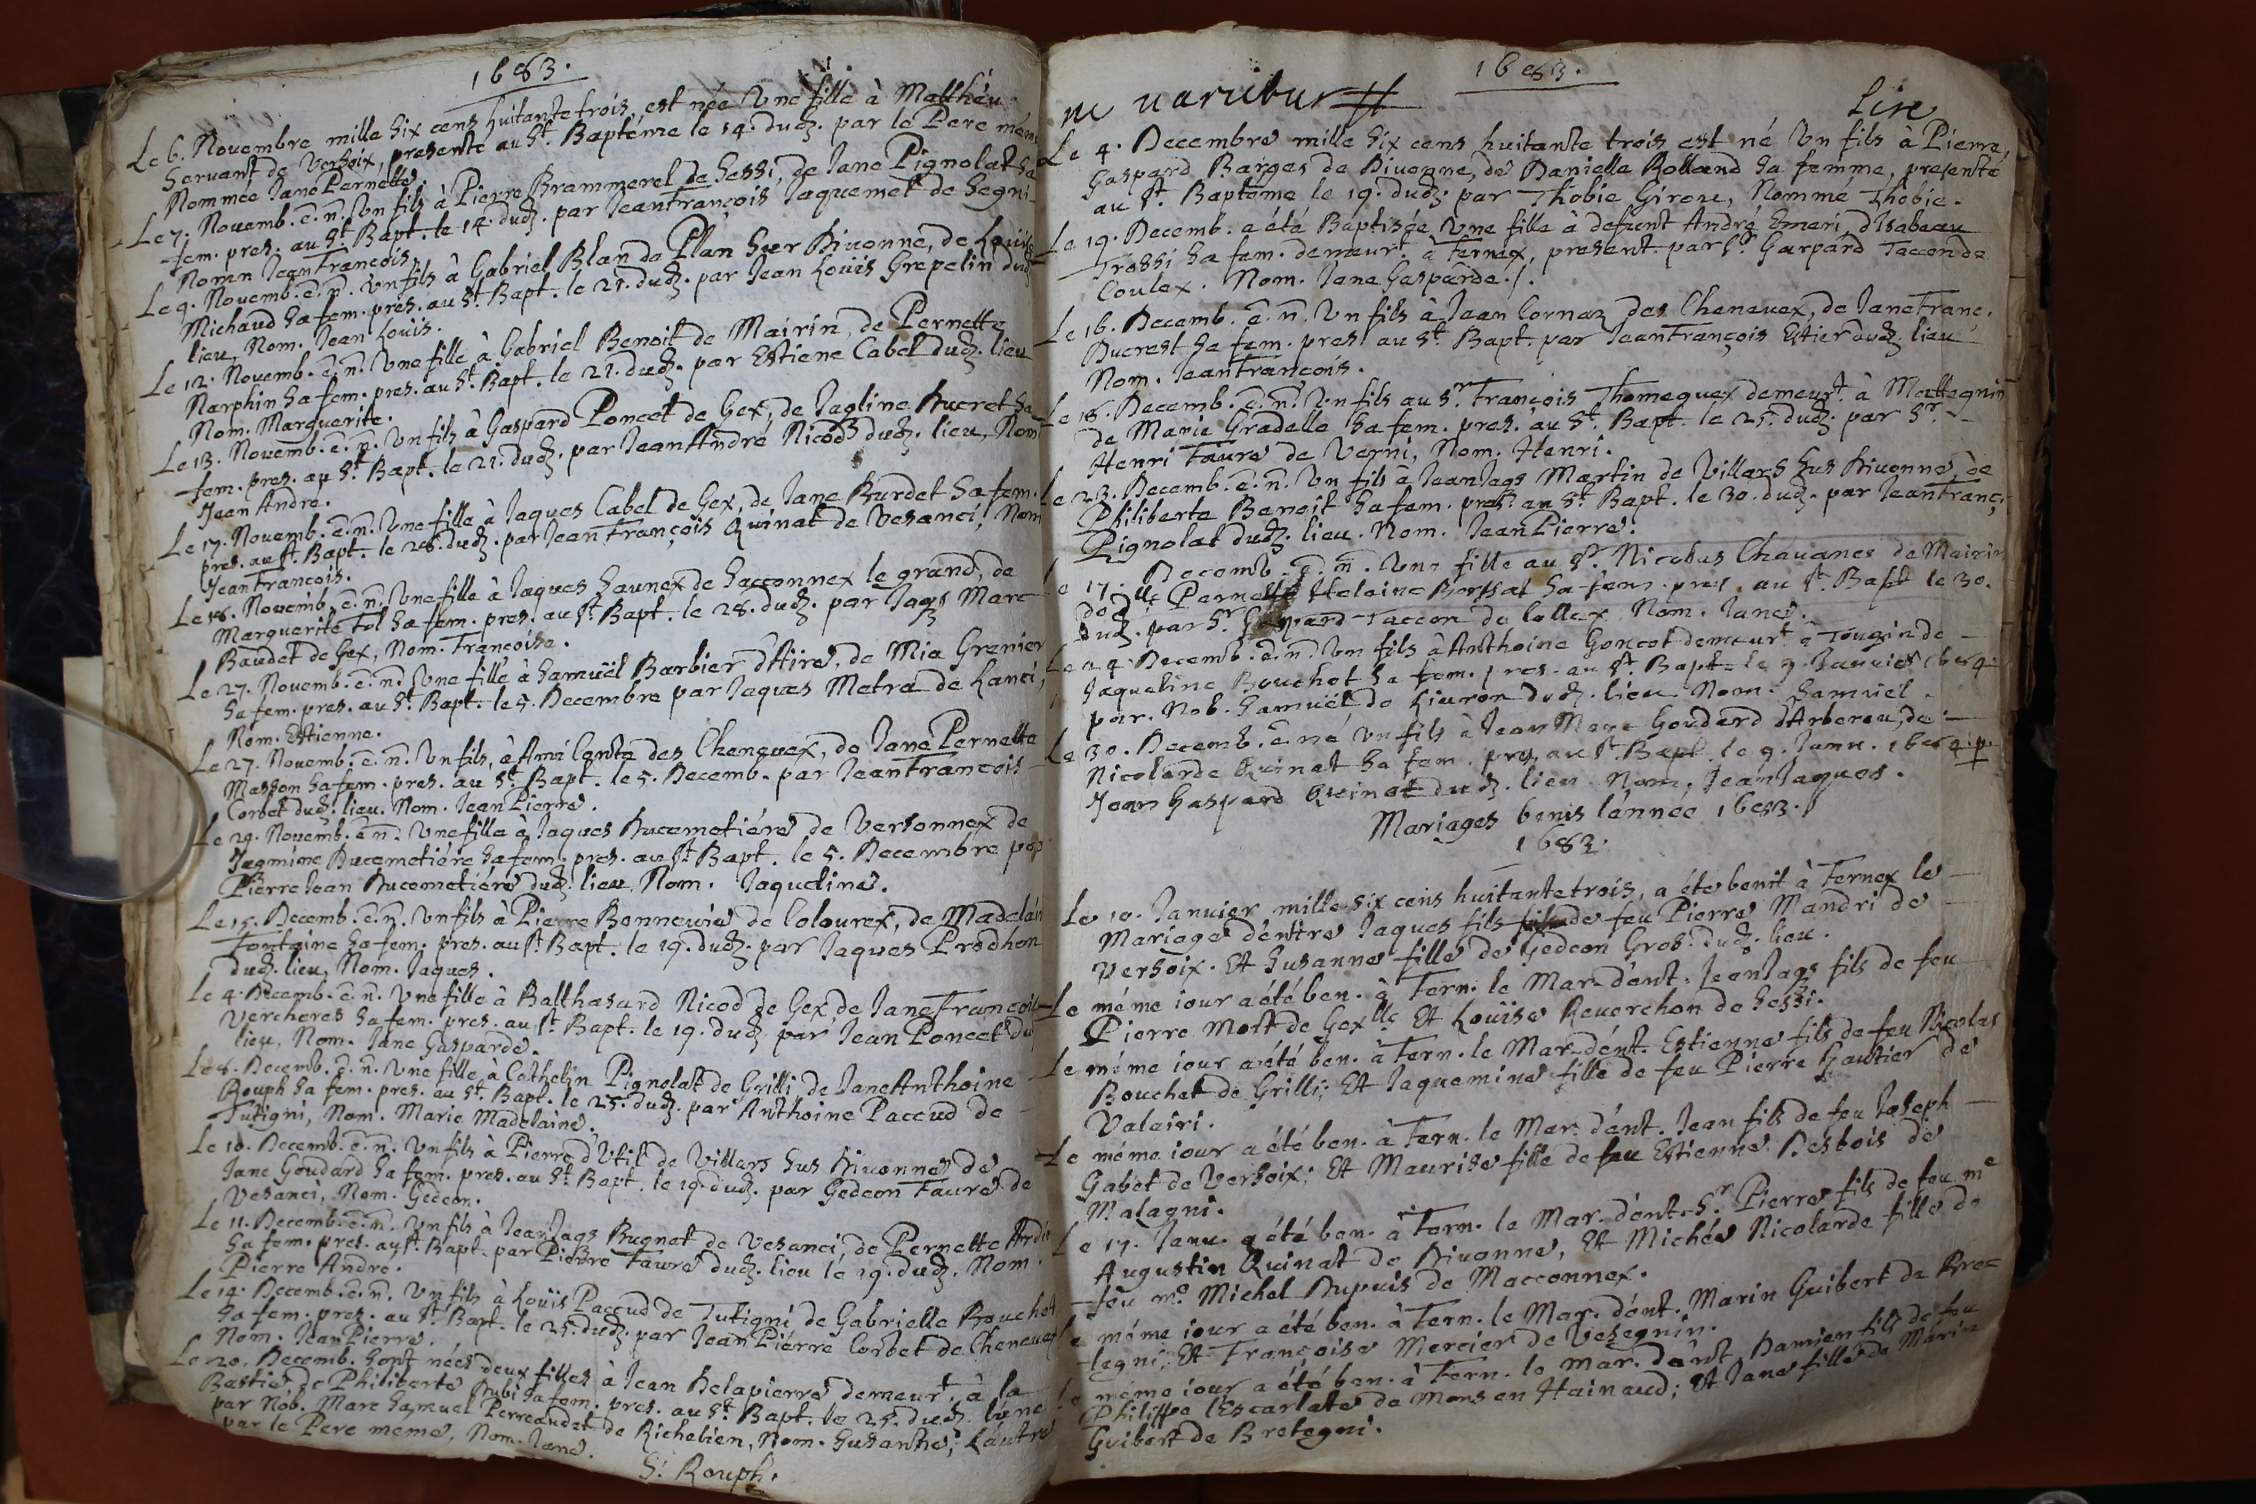 1683.
Le 6. Nouembre mille six cens huitante trois, est née Une fille à Matthéu
Seruant de Versoix, presenté au St. Baptéme le 14. dudz. par le Pere méme
Nommée Jane Pernette.
Le 7. Nouemb. ē. n̄. Vn fils à Pierre Brammerel de Sessi, de Jane Pignolat sa
fem. pres. au St. Bapt. le 14. dudz. par Jeanfrançois Jaquemet de Segni
Nomm Jean Francois.
Le 9. Nouemb. ē. n̄. Vn fils à Gabriel Blan de Plan sur Diuonne, de Louise
Michaud sa fem. pres. au St. Bapt. le 21. dudz. par Jean Louis Grepelin dudz
lieu, Nom. Jean Louis.
Le 12. Nouemb. ē. n̄. Une fille à Gabriel Benoit de Mairin, de Pernette
Marphin sa fem. pres. au St. Bapt. le 21. dudz. par Estiene Cabel dudz. lieu
Nom. Marguerite.
Le 13. Nouemb. ē. n̄. Vn fils à Gaspard Poncet de Gex, de Jaqline Ducret sa
fem. pres. au St. Bapt. le 21. dudz. par Jean André Nicod dudz. lieu, Nom
Jean André.
Le 17. Nouemb. ē. n̄. Une fille à Jaques Cabel de Gex, de Jane Burdet sa fem.
pres. au St. Bapt. le 28. dudz. par Jean François Quinat de Vesanci, Nom
Jean Francois.
Le 18. Nouemb. ē. n̄. Une fille à Jaques Saunex de Sacconnex le grand, de
Marguerite Fol sa fem. pres. au St. Bapt. le 28. dudz. par Jaqs Marc
Baudet de Gex, Nom. Françoise.
Le 27. Nouemb. ē. n̄. Une fille à Samuël Barbier d'Aire, de Mia Grenier
sa fem. pres. au St. Bapt. le 5. Decembre par Jaques Metra de Lanci,
Nom. Estienne.
Le 27. Nouemb. ē. n̄. Vn fils, à Ami Conte des Cheneuex, de Jane Pernette
Masson sa fem. pres. au St. Bapt. le 5. Decemb. par Jean François
Corbet dudz. lieu. Nom. Jean Pierre.
Le 29. Nouemb. ē n̄. Une fille à Jaques Ducemetiére de Versonnex de
Jaqmine Ducemetiére sa fem. pres. au St Bapt. le 5. Decembre par
Pierre Jean Ducemetiére dudz. lieu, Nom. Jaqueline.
Le 15. Decemb. ē. n̄. Vn fils à Pierre Bonneuie de Colourex, de Madelain
Fontaine sa fem. pres. au St Bapt. le 19. dudz. par Jaques Prodhon
dudz. lieu, Nom. Jaques.
Le 4. Decemb. ē. n̄. Une fille à Balthasard Nicod de Gex de Jane Françoise
Vercheres sa fem. pres. au St. Bapt. le 19. dudz. par Jean Poncet du
lieu, Nom. Jane Gasparde.
Le 8. Decemb. ē. n̄. Une fille à Cathelin Pignolat de Grilli de Jane Anthoine
Rouph sa fem. pres. au St. Bapt. le 25. dudz. par Anthoine Paccud de
Tutigni, Nom. Marie Madelaine.
Le 10. Decemb. ē. n̄. Vn fils à Pierre d'Util de Villars sus Diuonne de
Jane Goudard sa fem. pres. au St. Bapt. le 19. dudz. par Gedeon Faure de
Vesanci, Nom. Gedeon.
Le 11. Decemb. ē. n̄. Vn fils à Jean Jaqs Bugnet de Vesanci, de Pernette
sa fem. pres. au St. Bapt. par Pierre Faure dudz. lieu le 19. dudz. Nom.
Pierre André.
Le 14. Decemb. ē. n̄. Vn fils à Louis Paccud de Tutigni de Gabrielle Bouchet
sa fem. pres. au St. Bapt. le 25. dudz. par Jean Pierre Corbet de Cheneuex
Nom. Jean Pierre.
Le 20. Decemb. sont nées deux filles à Jean Delapierre demeurt. à la
Bastie de Philiberte Dubi sa fem. pres. au St. Bapt. le 25. dudz. l'une
par Nob. Marc Samuel Perreaudet de Richebien, Nom. Susanne; L'autre
par le Pere meme, Nom. Jane.
S. Rouph.
1683.
ne uarietur
Lire
Le 4. Decembre mille six cens huitante trois est né Vn fils à Pierre
Gaspard Barges de Diuonne, de Danielle Rolland sa femme, presenté
au St. Baptéme le 19. dudz. par Thobie Girou, Nommé Thobie.
Le 19. Decemb. a été Baptisée Une fille à defunt André Emeri, d'Isabeau
Trossi sa fem. demeurt. à Fernex, present. par Sr Gaspard Taccon de
Coulex. Nom. Jane Gasparde./.
Le 16. Decemb. ē. n̄. Vn fils à Jean Cornaz des Cheneuex, de Jane Franc.
Ducrest sa fem. pres. au St. Bapt. par Jean François Estier dudz. lieu
Nom. Jean François.
Le 18. Decemb. ē. n̄. Vn fils au Sr. François Thomeguex demeurt. à Mattegnin
de Marie Gradelle sa fem. pres. au St. Bapt. le 25. dudz. par Sr.
Henri Faure de Verni, Nom. Henri.
Le 23. Decemb. ē. n̄. Vn fils à Jean Jaqs Martin de Villars sus Diuonne de
Philiberte Benoit sa fem. pres. au St. Bapt. le 30. dudz. par Jean Franç.
Pignolat dudz. lieu. Nom. Jean Pierre.
Le 17. Decemb. ē. n̄. Une fille au Sr. Nicolas Chauanes de Mairin
de dlle Pernette Helaine Borsat sa fem. pres. au St. Bapt le 30.
dudz. par Sr. Gaspard Taccon de Collex Nom. Jane.
Le 24. Decemb. ē. n̄. Vn fils à Anthoine Goncet demeurt à Tougin de
Jaqueline Bouchet sa fem. pres. au St. Bapt. le 9. Januier 1684
par. Nob. Samuël de Liuron dudz. lieu Nom. Samuël.
Le 30. Decemb. ē. né Vn fils à Jean Marc Goudard d'Arberou, de
Nicolarde Quinat sa fem. pres. au St. Bapt. le 9. Janu. 1684. p.
Jean Gaspard Quinat dudz. lieu Nom. Jean Jaques.
Mariages benis l'année 1683.
1683.
Le 10. Januier mille six cens huitante trois, a été benit à Fernex le
Mariage d'entre Jaques fils de feu Pierre Mandri de
Versoix. Et Susanne fille de Gedeon Gros dudz. lieu.
Le méme iour a été ben. à Fern. le Mar. d'ent. Jean Jaqs fils de feu
Pierre Mort de Gex lle Et Louise Reuerchon de Sessi.
Le méme iour a été ben. à Fern. le Mar. d'ent. Estienne fils de feu Nicolas
Bouchet de Grilli; Et Jaquemine fille de feu Pierre Gautier de
Valairi.
Le méme iour a été ben. à Fern. le Mar. d'ent. Jean fils de feu Joseph
Gabet de Versoix; Et Maurise fille de feu Estienne Desbois de
Malagni.
Le 17. Janu. a été ben. à Fern. le Mar. d'ent. Sr Pierre fils de feu me
Augustin Quinat de Diuonne, Et Michée Nicolarde fille de
feu me. Michel Dupuis de Macconnex.
Le méme iour a été ben. à Fern. le Mar. d'ent. Marin Guibert de Bre-
tegni; Et Françoise Mercier de Vesegnin.
Le méme iour a été ben. à Fern. le mar. d'ent. Damien fils de feu
Philippe l'Escarlate de Mons en Hainaud; Et Jane fille de Marin
Guibert de Bretegni.